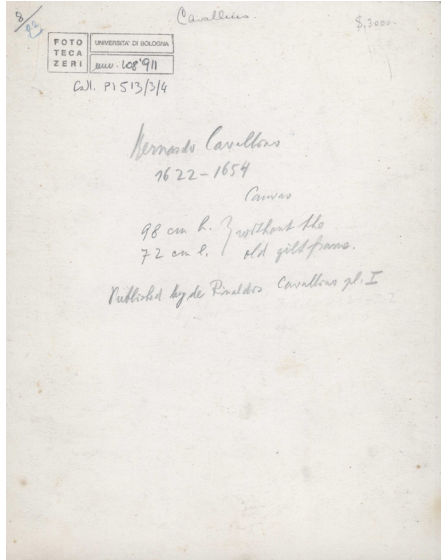 8
92
Cavallino
$,3000-
FOTO
TECA
ZERI
UNIVERSITA' DI BOLOGNA
inv. 108'911
Coll. PI 513/3/4
Bernardo Cavallino
1622-1654
Canvas
98 cm h. } without the
72 cm l. } old gilt frame.
Published by de Rinaldis Cavallino pl. I